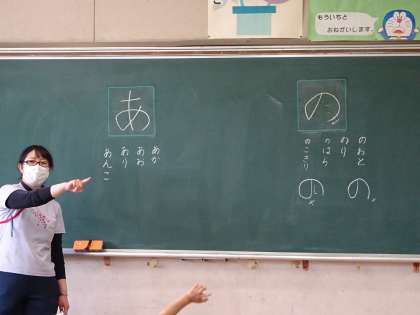 もういちど
おねがいします。
の
のおと
のり
のはら
のこぎり
の
の
あ
あか
あわ
あり
あんこ